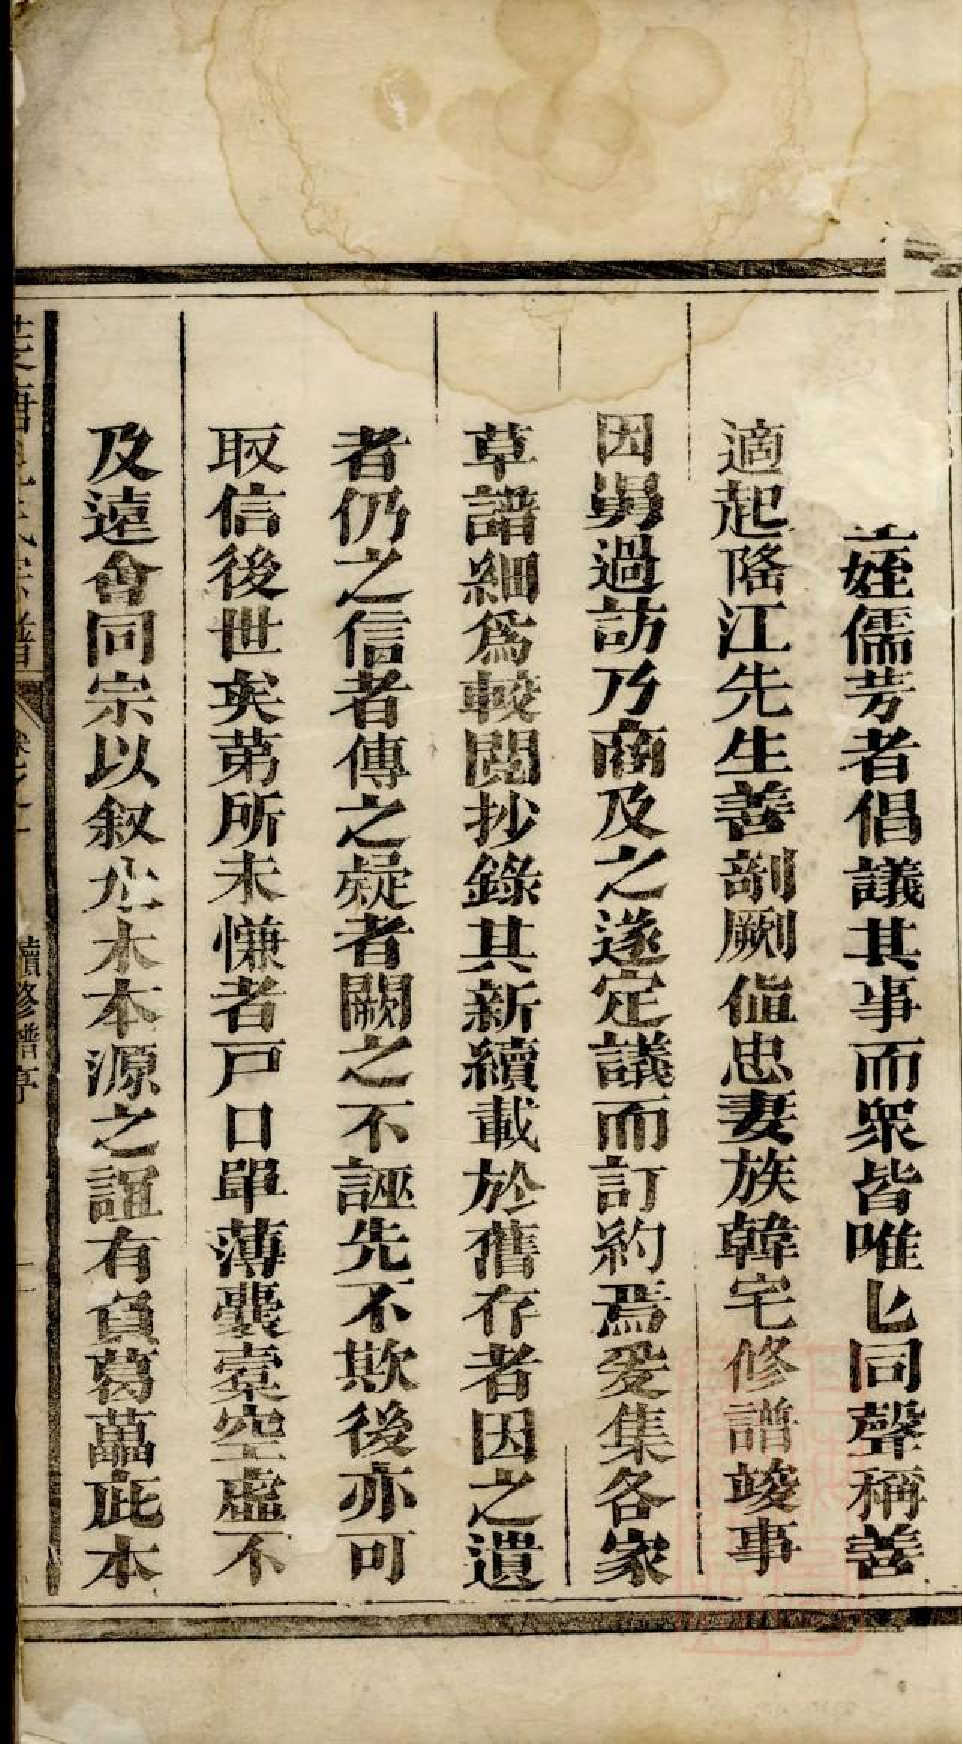 姪儒芳者倡議其事而衆皆唯匕同聲稱善
適起隆江先生善剞劂値忠妻族韓宅修譜竣事
因舅過訪乃商及之遂定議而訂約焉爰集各家
草譜細爲較閱抄錄其新續載於舊存者因之遺
者仍之信者傳之疑者闕之不誣先不欺後亦可
取信後世矣第所未慊者戸口單薄囊橐空虛不
及遠會同宗以叙水木本源之誼有負葛藟庇本
續修譜序